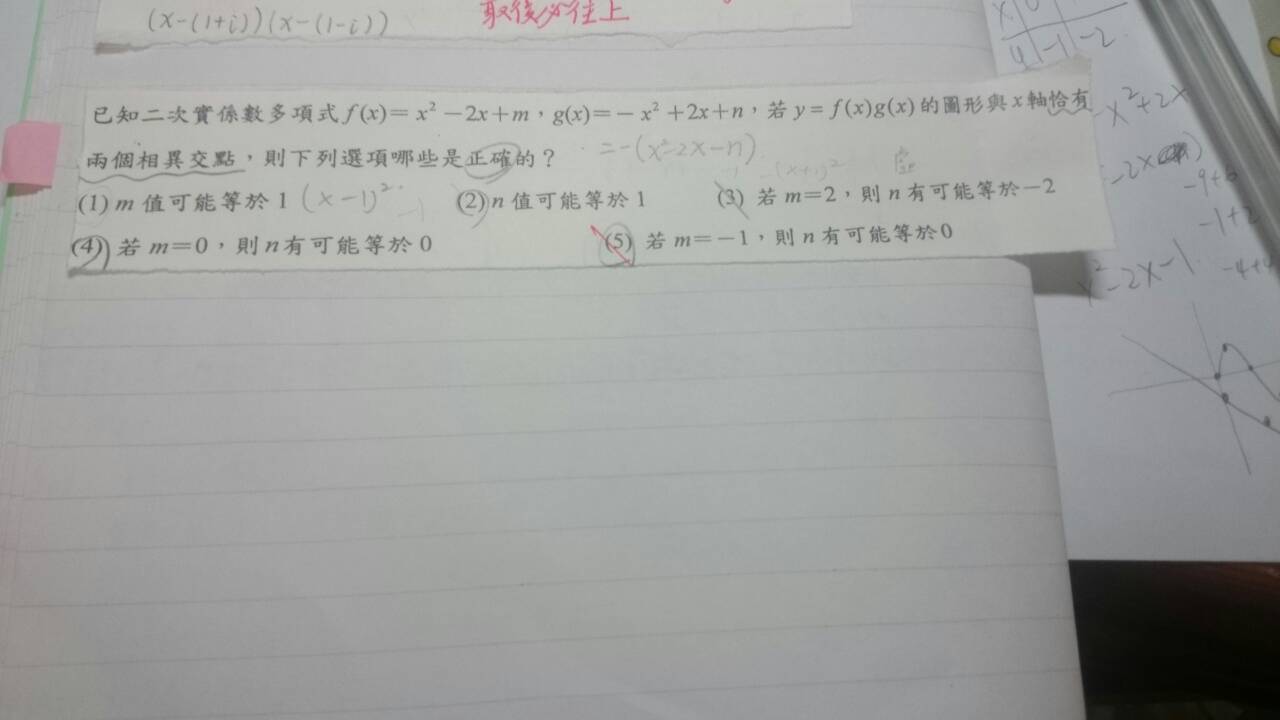 (x-(1+i))(x-(1-i))
取後必往上
已知二次實係數多項式 f(x)= x² −2x+m，g(x)=− x² +2x+n，若 y= f(x)g(x) 的圖形與 x 軸恰有
兩個相異交點，則下列選項哪些是正確的？ =-(x²-2x-n)
(1) m 值可能等於 1 (x-1)² (2) n 值可能等於 1 (3) 若 m=2，則 n 有可能等於−2
-1
(4) 若 m=0，則 n 有可能等於 0 (5) 若 m=−1，則 n 有可能等於0
x 0
y -1 -2
-x²+2x
-2x
-9+6
-1+2
x²-2x-1